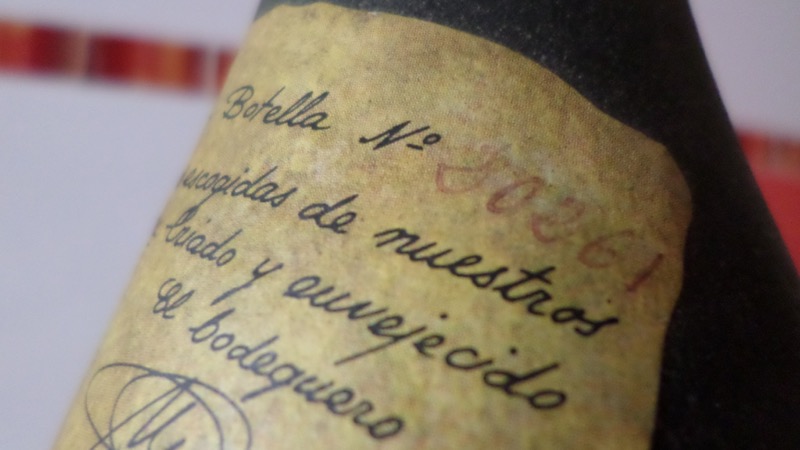 Botella Nº 80261
escogidas de nuestros
Criado y envejecido
El bodeguero